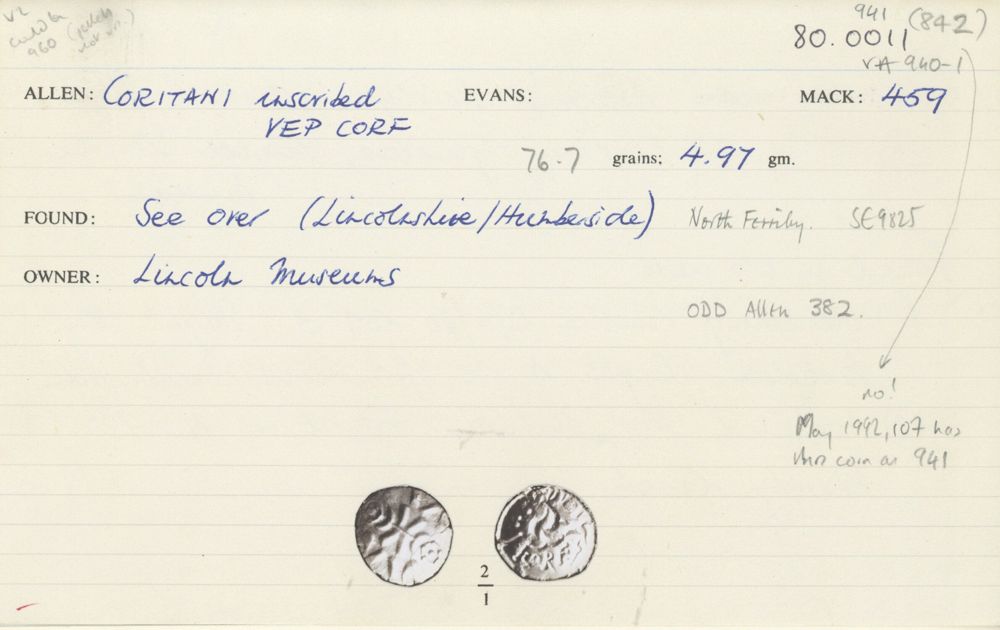 941 (842)
80.0011
VA 940-1
ALLEN: CORITANI inscribed EVANS: MACK: 459
VEP CORF
76.7 grains: 4.97 gm.
FOUND: See over (Lincolnshire/Humberside) North Ferriby. SE9825
OWNER: Lincoln Museums
ODD Allen 382.
no!
May 1992, 107 has
this coin as 941
CORF
2
1
960